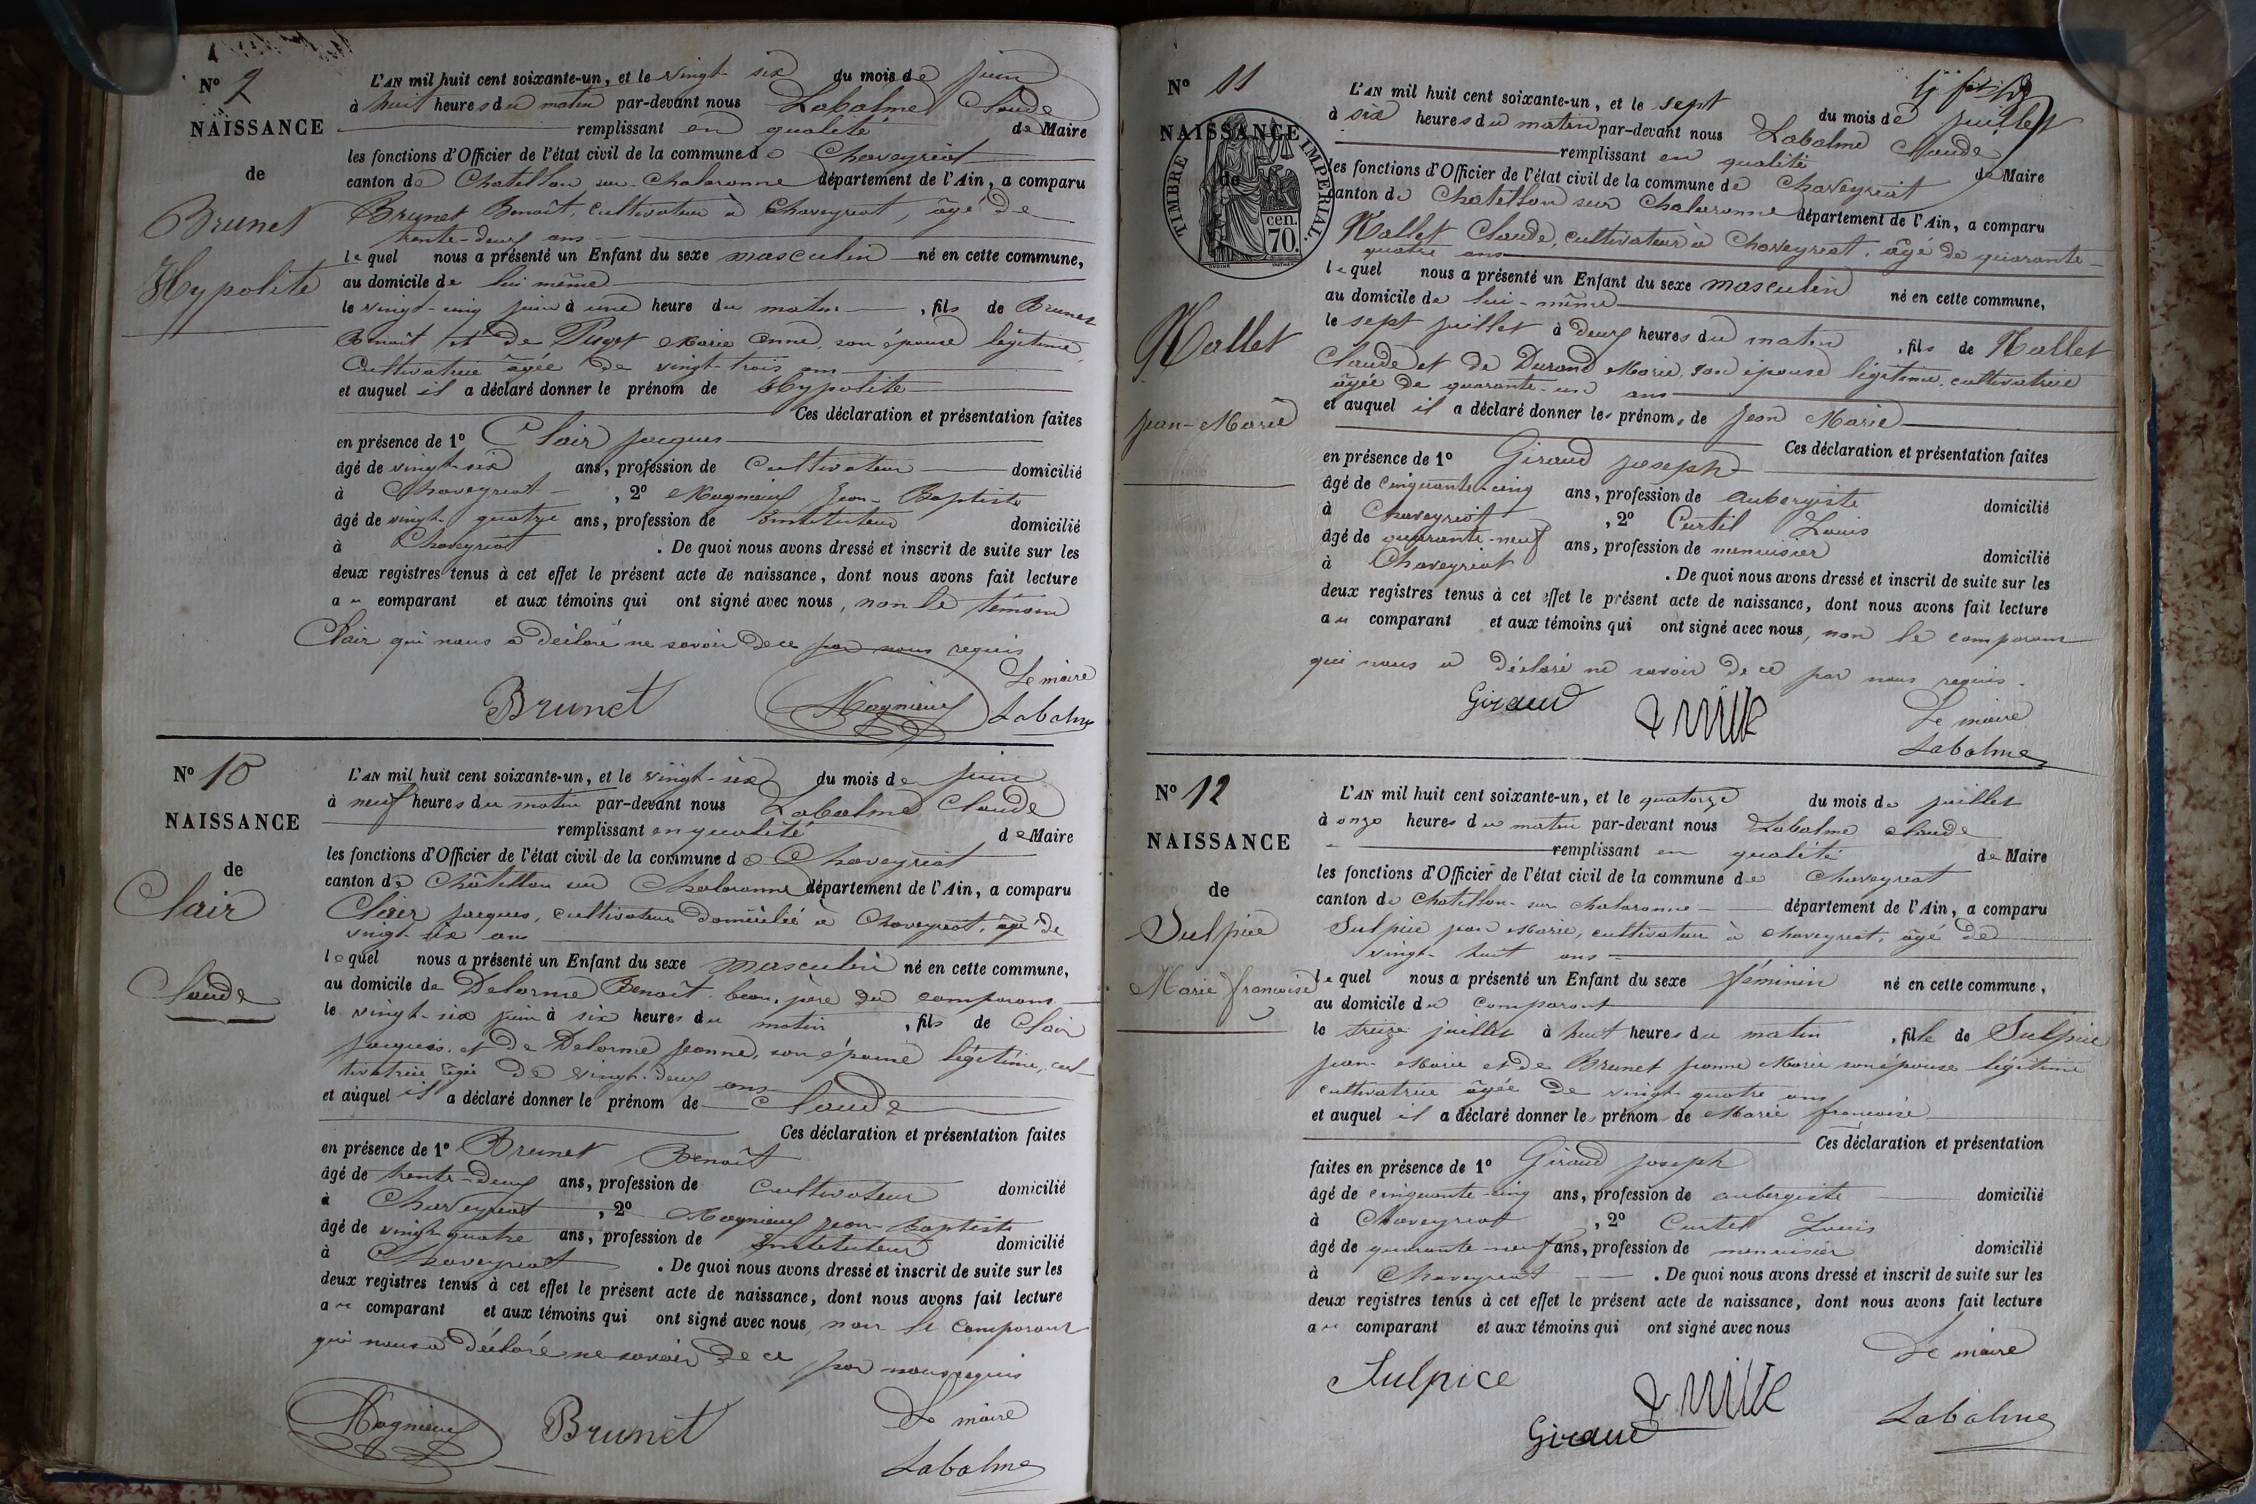 N° 9
NAISSANCE
de
Brunet
Hypolite
L'AN mil huit cent soixante-un, et le vingt-six du mois de juin
à huit heures du matin par-devant nous Labalme Claude
remplissant en qualité de Maire
les fonctions d'Officier de l'état civil de la commune de Chaveyriat
canton de Chatillon sur Chalaronne département de l'Ain, a comparu
Brunet Benoît, cultivateur à Chaveyriat, âgé de
trente-deux ans
lequel nous a présenté un Enfant du sexe masculin né en cette commune,
au domicile de lui même
le vingt-cinq juin à une heure du matin, fils de Brunet
Benoît et de Puget Marie Anne, son épouse légitime,
Cultivatrice âgée de vingt-trois ans
et auquel il a déclaré donner le prénom de Hypolite
Ces déclaration et présentation faites
en présence de 1° Clair Jacques
âgé de vingt-six ans, profession de Cultivateur domicilié
à Chaveyriat, 2° Magnieux Jean-Baptiste
âgé de vingt quatre ans, profession de Instituteur domicilié
à Chaveyriat. De quoi nous avons dressé et inscrit de suite sur les
deux registres tenus à cet effet le présent acte de naissance, dont nous avons fait lecture
au comparant et aux témoins qui ont signé avec nous, non le témoin
Clair qui nous a déclaré ne savoir de ce par nous requis
Le maire
Brunet Magnieux Labalme
N° 10
NAISSANCE
de
Clair
Claude
L'AN mil huit cent soixante-un, et le vingt-six du mois de juin
à neuf heures du matin par-devant nous Labalme Claude
remplissant en qualité de Maire
les fonctions d'Officier de l'état civil de la commune de Chaveyriat
canton de Châtillon sur Chalaronne département de l'Ain, a comparu
Clair Jacques, cultivateur domicilié à Chaveyriat, âgé de
vingt-six ans
lequel nous a présenté un Enfant du sexe masculin né en cette commune,
au domicile de Delorme Benoît beau-père du comparant
le vingt-six juin à six heures du matin, fils de Clair
Jacques et de Delorme Jeanne, son épouse légitime, cul-
tivatrice âgée de vingt-deux ans
et auquel il a déclaré donner le prénom de Claude
Ces déclaration et présentation faites
en présence de 1° Brunet Benoît
âgé de trente-deux ans, profession de Cultivateur domicilié
à Chaveyriat, 2° Magnieux Jean-Baptiste
âgé de vingt-quatre ans, profession de Instituteur domicilié
à Chaveyriat. De quoi nous avons dressé et inscrit de suite sur les
deux registres tenus à cet effet le présent acte de naissance, dont nous avons fait lecture
au comparant et aux témoins qui ont signé avec nous, non le comparant
qui nous a déclaré ne savoir de ce par nous requis
Le maire
Magnieux Brunet Labalme
N° 11
NAISSANCE
de
TIMBRE IMPERIAL.
70 cen.
Nallet
Jean-Marie
L'AN mil huit cent soixante-un, et le sept du mois de juillet
à six heures du matin par-devant nous Labalme Claude
remplissant en qualité de Maire
les fonctions d'Officier de l'état civil de la commune de Chaveyriat
canton de Chatillon sur Chalaronne département de l'Ain, a comparu
Nallet Claude, cultivateur à Chaveyriat, âgé de quarante-
quatre ans
lequel nous a présenté un Enfant du sexe masculin né en cette commune,
au domicile de lui-même
le sept juillet à deux heures du matin, fils de Nallet
Claude et de Durand Marie, son épouse légitime, cultivatrice
âgée de quarante-un ans
et auquel il a déclaré donner les prénoms de Jean Marie
Ces déclaration et présentation faites
en présence de 1° Giraud Joseph
âgé de cinquante-cinq ans, profession de Aubergiste domicilié
à Chaveyriat, 2° Curtil Louis
âgé de quarante-neuf ans, profession de menuisier domicilié
à Chaveyriat. De quoi nous avons dressé et inscrit de suite sur les
deux registres tenus à cet effet le présent acte de naissance, dont nous avons fait lecture
au comparant et aux témoins qui ont signé avec nous, non le comparant
qui nous a déclaré ne savoir de ce par nous requis.
Giraud Le maire
Labalme
N° 12
NAISSANCE
de
Sulpice
Marie françoise
L'AN mil huit cent soixante-un, et le quatorze du mois de juillet
à onze heures du matin par-devant nous Labalme Claude
remplissant en qualité de Maire
les fonctions d'Officier de l'état civil de la commune de Chaveyriat
canton de Chatillon-sur Chalaronne département de l'Ain, a comparu
Sulpice jean Marie, cultivateur à Chaveyriat, âgé de
vingt-huit ans
lequel nous a présenté un Enfant du sexe féminin né en cette commune,
au domicile du comparant
le treize juillet à huit heures du matin, fille de Sulpice
jean Marie et de Brunet jeanne Marie son épouse légitime
cultivatrice âgée de vingt-quatre ans
et auquel il a déclaré donner les prénom de Marie françoise
Ces déclaration et présentation
faites en présence de 1° Giraud Joseph
âgé de cinquante-cinq ans, profession de aubergiste domicilié
à Chaveyriat, 2° Curtil Louis
âgé de quarante neuf ans, profession de menuisier domicilié
à Chaveyriat. De quoi nous avons dressé et inscrit de suite sur les
deux registres tenus à cet effet le présent acte de naissance, dont nous avons fait lecture
au comparant et aux témoins qui ont signé avec nous
Le maire
Sulpice
Giraud Labalme